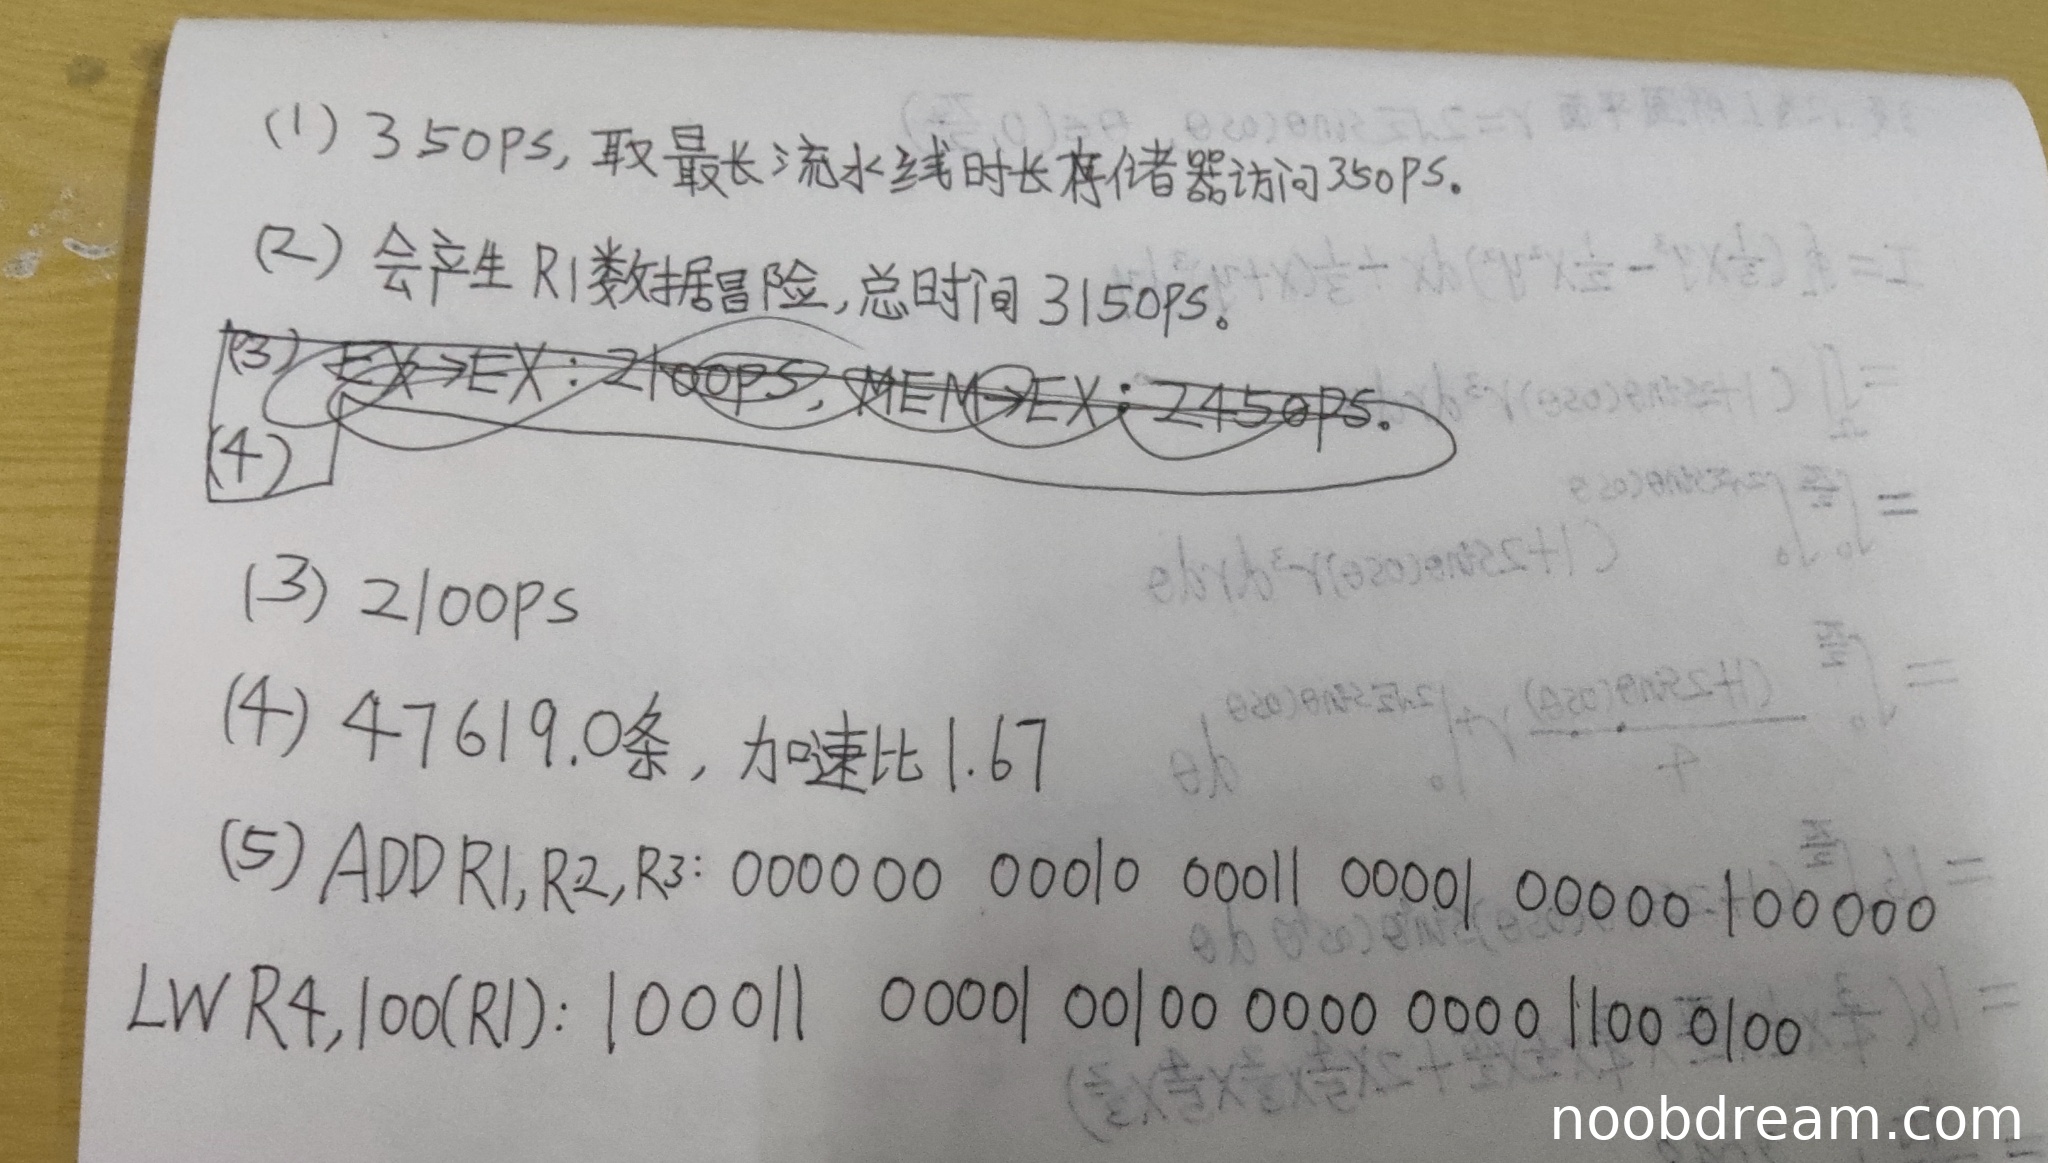 (1) 350ps, 取最长流水线时长存储器访问350ps。
(2) 会产生R1数据冒险,总时间3150ps。
(3) EX→EX: 2100ps, MEM→EX: 2450ps.
(4)
(3) 2100ps
(4) 47619.0条, 加速比1.67
(5) ADD R1, R2, R3: 000000 00010 00011 00001 00000 100000
LW R4, 100(R1): 100011 00001 00100 0000 0000 1100 0100
noobdream.com